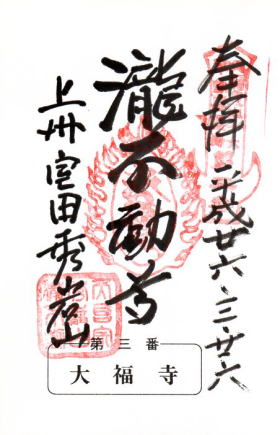 奉拝 平成廿六・三・廿六
瀧不動尊
上州室田秀岩山
第三番
大福寺